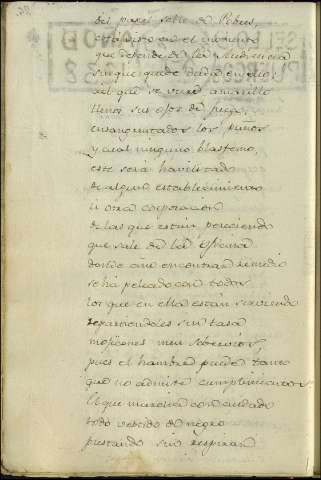 del papel sello de Pobres,
esta visto en el momento
que depende de la Audiencia
sin que quede duda en ello;
del que se vuelve amarillo
llenos sus ojos de fuego,
ensangrentados los puños
y cual ninguno blasfemo,
este será havilitado
de algun establecimiento
u otra corporacion
de las que estan pereciendo
que sale de la oficina
donde no encontrar remedio
se ha peleado con todos
los que en ella están sirviendo
repartiendoles sin tasa
mojicones muy soberbios,
pues el hambre puede tanto
que no admite cumplimientos
El que marcha con cuidado
todo vestido de negro
prestando sin respirar